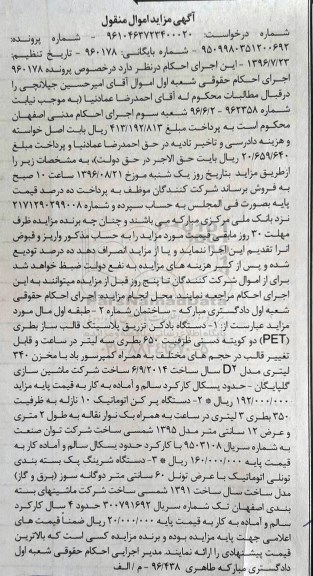 آگهی مزایده اموال منقول
شماره درخواست: ۹۶۱۰۴۶۳۷۲۳۴۰۰۰۲۰ - شماره پرونده:
۹۵۰۹۹۸۰۳۵۱۲۰۰۶۹۲ - شماره بایگانی: ۹۶۰۱۷۸ - تاریخ تنظیم:
۱۳۹۶/۷/۲۳ - این اجرای احکام درنظر دارد درخصوص پرونده ۹۶۰۱۷۸
اجرای احکام حقوقی شعبه اول اموال آقای امیرحسین جیلانچی را
درقبال مطالبات محکوم له آقای احمدرضا عمادنیا (به موجب نیابت
شماره ۹۶۲۳۵۸ - ۹۶/۶/۲ شعبه سوم اجرای احکام مدنی اصفهان
محکوم است به پرداخت مبلغ ۴۱۳/۱۹۲/۸۱۳ ریال بابت اصل خواسته
و هزینه دادرسی و تاخیر تادیه در حق احمدرضا عمادنیا و پرداخت مبلغ
۲۰/۶۵۹/۶۴۰ ریال بابت حق الاجر در حق دولت)، به مشخصات زیر را
ازطریق مزایده بتاریخ روز یک شنبه مورخ ۱۳۹۶/۰۸/۲۱ ساعت ۱۰ صبح
به فروش برساند شرکت کنندگان موظف به پرداخت ده درصد قیمت
پایه بصورت فی المجلس به حساب سپرده و شماره ۲۱۷۱۲۹۰۲۹۹۰۰۸
نزد بانک ملی مرکزی مبارکه می باشند و چنان چه برنده مزایده ظرف
مهلت ۳۰ روز مابقی قیمت مورد مزایده را به حساب مذکور واریز و قبوض
آنرا تقدیم این اجرا ننماید و یا از مزایده انصراف دهد ده درصد تودیع
شده و پس از کسر هزینه های مزایده به نفع دولت ضبط خواهد شد
برای از اموال شرکت کنندگان تا پنج روز قبل از مزایده میتوانند به این
اجرای احکام مراجعه نمایند محل انجام مزایده اجرای احکام حقوقی
شعبه اول دادگستری مبارکه - ساختمان شماره ۲ - طبقه اول مال مورد
مزایده عبارتست از: ۱- دستگاه بادکن تزریق پلاستیک قالب ساز بطری
(PET) دو کوبیته دستی ظرفیت ۶۵۰ بطری سه لیتر در ساعت و قابل
تغییر قالب در حجم های مختلف به همراه کمپرسور باد با مخزن ۳۴۰
لیتری مدل D۲ سال ساخت ۶/۹/۲۰۱۴ ساخت شرکت ماشین سازی
گلپایگان - حدود یکسال کارکرد سالم و آماده به کار به قیمت پایه مزایده
۱۹۲/۰۰۰/۰۰۰ ریال * ۲- دستگاه پر کن اتوماتیک ۱۰ نازله به ظرفیت
۳۵۰ بطری ۳ لیتری در ساعت به همراه یک نوار نقاله به طول ۲ متری
و عرض ۱۲ سانتی متر مدل ۱۳۹۵ شمسی ساخت شرکت توان صنعت
به شماره سریال ۹۵۰۳۱۰۸ با کارکرد حدود یکسال سالم و آماده کار به
قیمت پایه ۱۶۰/۰۰۰/۰۰۰ ریال * ۳- دستگاه شرینگ پک بسته بندی
تونلی اتوماتیک با عرض تونل ۶۰ سانتی متر دوگانه سوز (برق و گاز)
مدل ساخت سال ساخت ۱۳۹۱ شمسی ساخت شرکت ماشینهای بسته
بندی اصفهان تک شماره سریال ۳۰۰۷۹۱۶۹۲ حدود ۴ سال کارکرد
سالم و آماده به کار به قیمت پایه ۲۰/۰۰۰/۰۰۰ ریال ضمنا قیمت های
اعلامی جهت پایه مزایده بوده و برنده مزایده کسی است که بالاترین
قیمت پیشنهادی را ارائه نمایند. مدیر اجرایی احکام حقوقی شعبه اول
دادگستری مبارکه طاهری ۹۶/۴۳۸ - م / الف